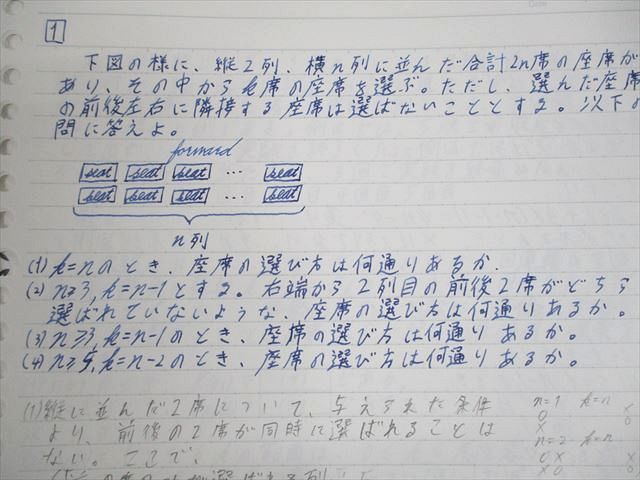 1
下図の様に、縦2列、横n列に並んだ合計2n席の座席が
あり、その中からk席の座席を選ぶ。ただし、選んだ座席
の前後左右に隣接する座席は選ばないこととする。以下の
問に答えよ。
forward
seat seat seat … seat
seat seat seat … seat
n列
(1) k=nのとき、座席の選び方は何通りあるか.
(2) n≧3, k=n-1とする。右端から2列目の前後2席がどちら
選ばれていないような、座席の選び方は何通りあるか。
(3) n≧3, k=n-1のとき、座席の選び方は何通りあるか。
(4) n≧5, k=n-2のとき、座席の選び方は何通りあるか。
(1) 縦に並んだ2席について、与えられた条件 n=1 k=n
より、前後の2席が同時に選ばれることは n=2 k=n
ない。ここで、